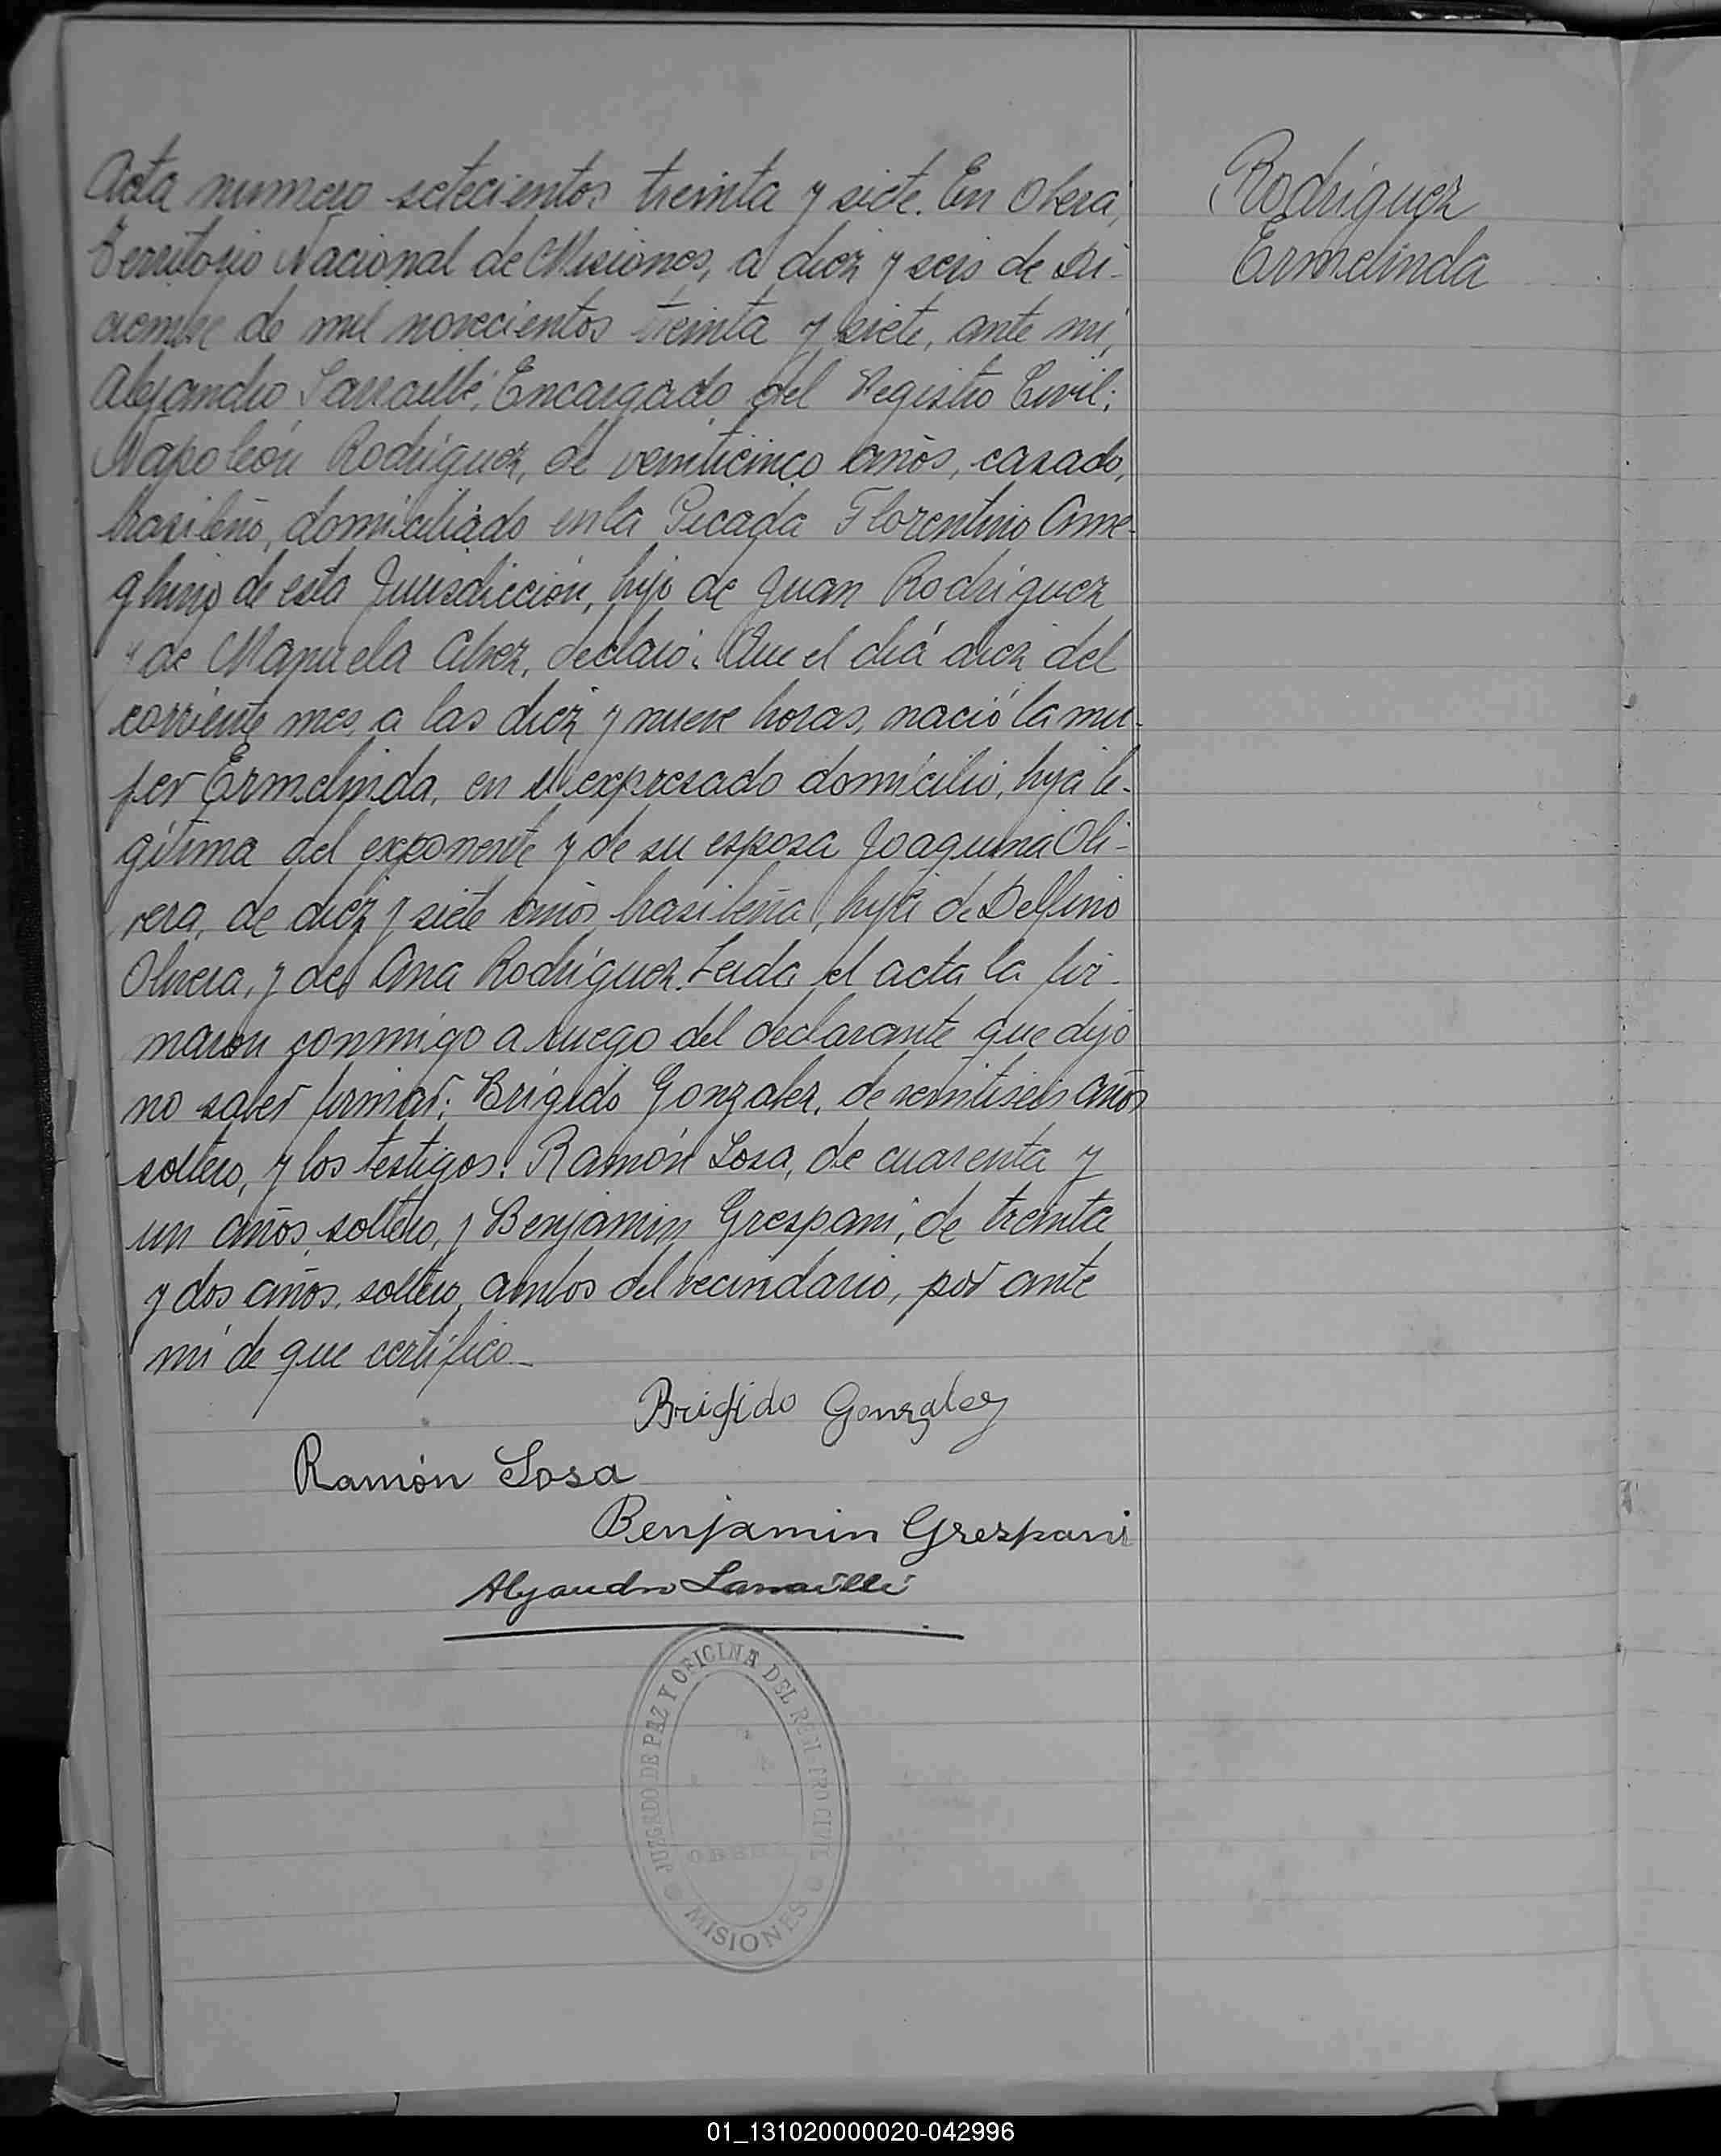 Acta numero setecientos treinta y siete. En Oberá,
Territorio Nacional de Misiones, a diez y seis de Di-
ciembre de mil novecientos treinta y siete, ante mi,
Alejandro Sarraillé, Encargado del Registro Civil;
Napoleón Rodriguez, de veinticinco años, casado,
brasileño, domiciliado en la Picada Florentino Ame-
ghino de esta Jurisdicción, hijo de Juan Rodriguez
y de Manuela Alvez, declaró: Que el diá diez del
corriente mes, a las diez y nueve horas, nació la mu-
jer Ermelinda, en el expresado domicilio, hija le-
gitima del exponente y de su esposa Joaquina Oli-
vera, de diez y siete años, brasileña, hija de Delfino
Olivera, y de Ana Rodriguez. Leida el acta la fir-
maron conmigo a ruego del declarante que dijo
no saber firmar: Brigido Gonzalez, de veintiseis años
soltero, y los testigos: Ramón Sosa, de cuarenta y
un años, soltero, y Benjamin Grespani, de treinta
y dos años, soltero, ambos del vecindario, por ante
mi de que certifico.-
Brigido Gonzalez
Ramón Sosa
Benjamin Grespani
Alejandro Sarraillé
JUZGADO DE PAZ Y OFICINA DEL REGISTRO CIVIL
OBERA
MISIONES
Rodriguez
Ermelinda
01_131020000020-042996